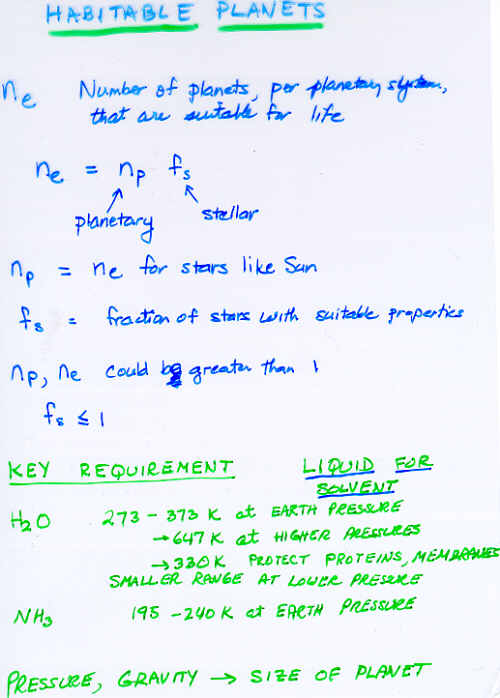 HABITABLE PLANETS
ne Number of planets, per planetary system,
that are suitable for life
ne = np fs
planetary stellar
np = ne for stars like Sun
fs = fraction of stars with suitable properties
np, ne could be greater than 1
fs ≤ 1
KEY REQUIREMENT LIQUID FOR
SOLVENT
H2O 273 - 373 K at EARTH PRESSURE
→ 647 K at HIGHER PRESSURES
→ 330 K PROTECT PROTEINS, MEMBRANES
SMALLER RANGE AT LOWER PRESSURE
NH3 195 - 240 K at EARTH PRESSURE
PRESSURE, GRAVITY → SIZE OF PLANET